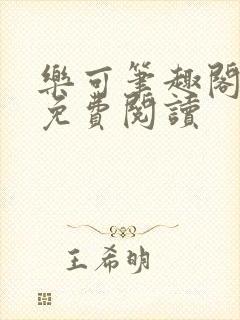 樂可筆趣閣
免費閱讀
王希明